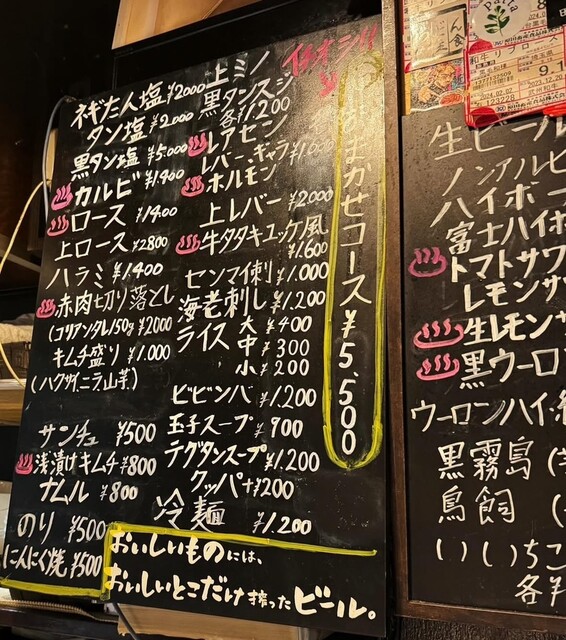 ネギたん塩 ¥2000
タン塩 ¥2.000
黒タン塩 ¥5.000
カルビ ¥1.400
ロース ¥1400
上ロース ¥2800
ハラミ ¥1.400
赤肉切り落とし
(コリアンタレ)150g ¥2000
キムチ盛り ¥1.000
(ハクサイ,ニラ,山芋)
サンチュ ¥500
浅漬けキムチ ¥800
ナムル ¥800
のり ¥500
にんにく焼 ¥500
上ミノ
黒タンスジ
各¥1.200
レアセン
レバー、ギャラ
ホルモン ¥1.000
上レバー ¥2.000
牛タタキユッケ風
¥1.600
センマイ刺 ¥1.000
海老刺し ¥1.200
ライス 大 ¥400
中 ¥300
小 ¥200
ビビンバ ¥1.200
玉子スープ ¥900
テグタンスープ ¥1.200
クッパ+¥200
冷麺 ¥1200
イチオシ!!
まかせコース ¥5,500
おいしいものには、
おいしいとこだけ搾ったビール。
生ビール
ノンアルビ
ハイボー
富士ハイボ
トマトサワ
レモンサ
生レモンサ
黒ウーロン
ウーロンハイ・
黒霧島
鳥飼
いいちこ
各¥